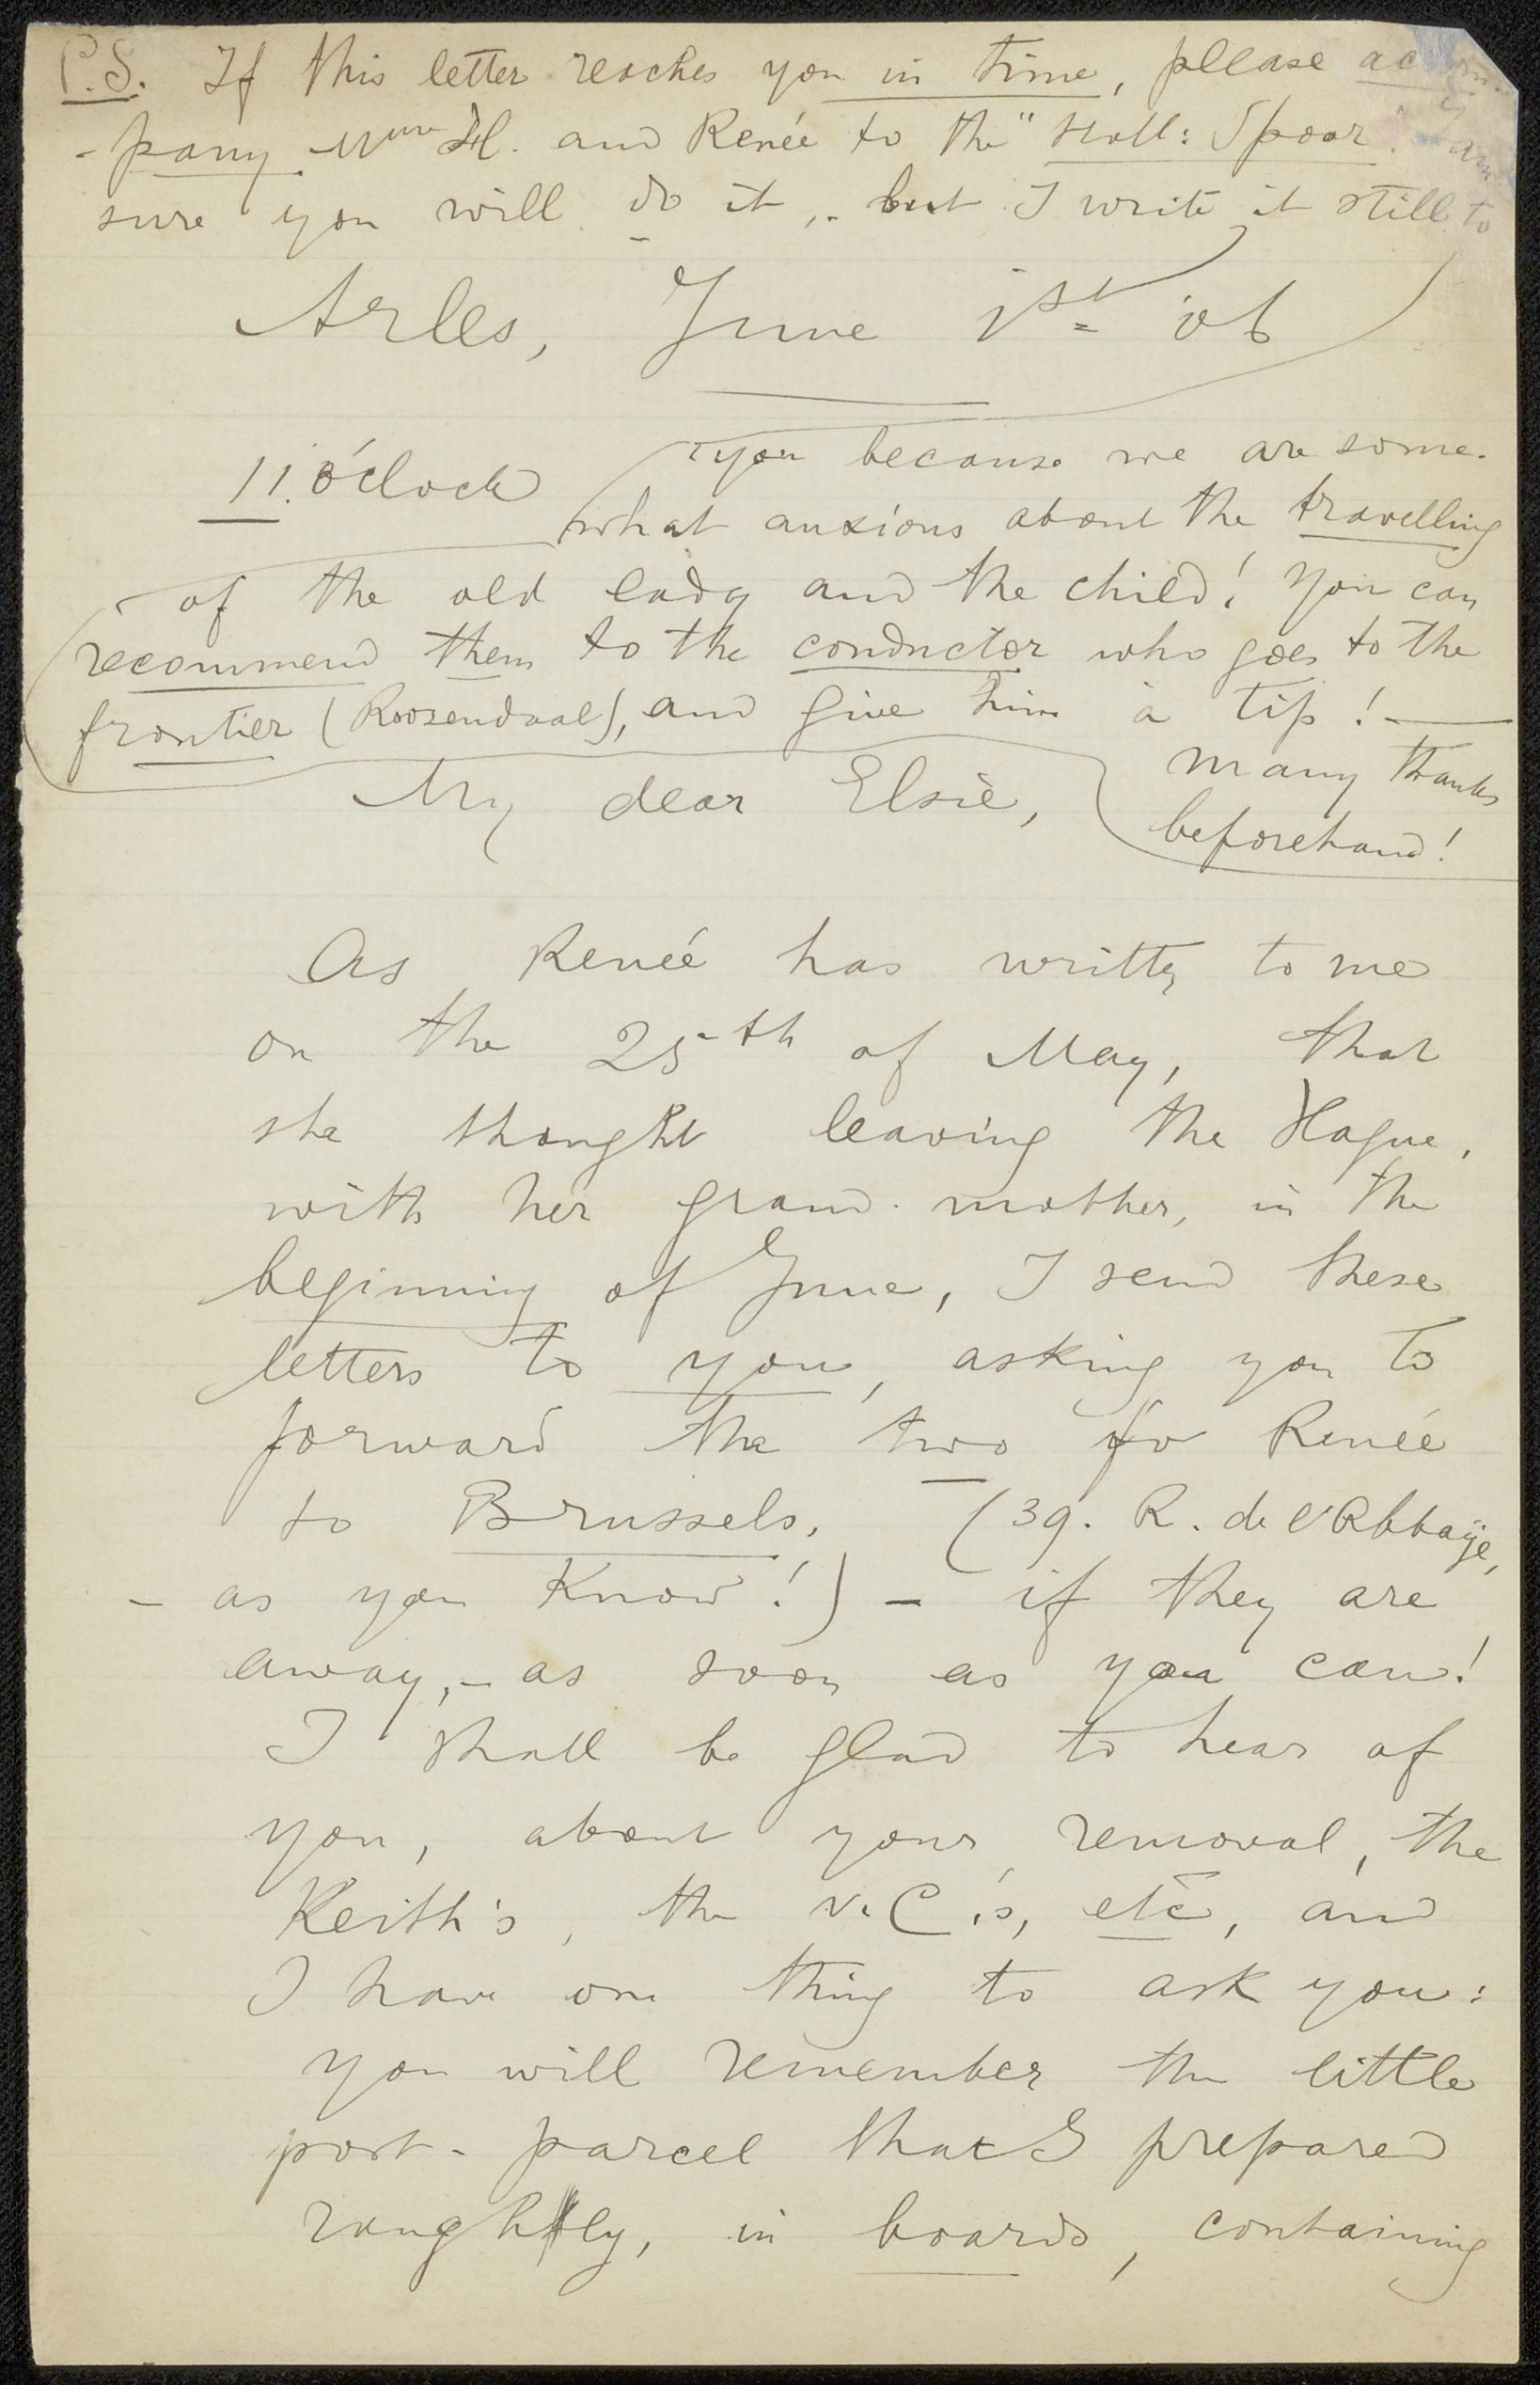 P.S. If this letter reaches you in time, please ac
-pany Mme H. and Renée to the "Holl: Spoor
sure you will do it, - but I write it still to
Arles, June 1st 06
11. o'clock
you because we are some-
what anxious about the travelling
of the old lady and the child! You can
recommend them to the conductor who goes to the
frontier (Roosendaal), and give him a tip! -
many thanks
beforehand!
My dear Elsie,
As Renée has written to me
on the 25th of May, that
she thought leaving the Hague,
with her grand-mother, in the
beginning of June, I send these
letters to you, asking you to
forward the two for Renée
to Brussels, (39. R. de l'Abbaye,
- as you know!) - if they are
away, - as soon as you can!
I shall be glad to hear of
you, about your removal, the
Keith's, the v. C's, etc, and
I have one thing to ask you:
you will remember the little
post-parcel that I prepared
roughly, in boards, containing